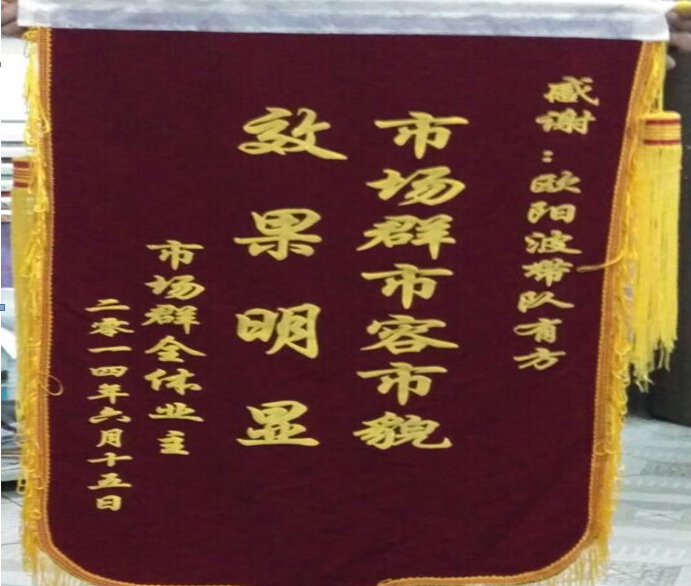 感谢：欧阳波带队有方
市场群市容市貌
效果明显
市场群全体业主
二零一四年六月十五日